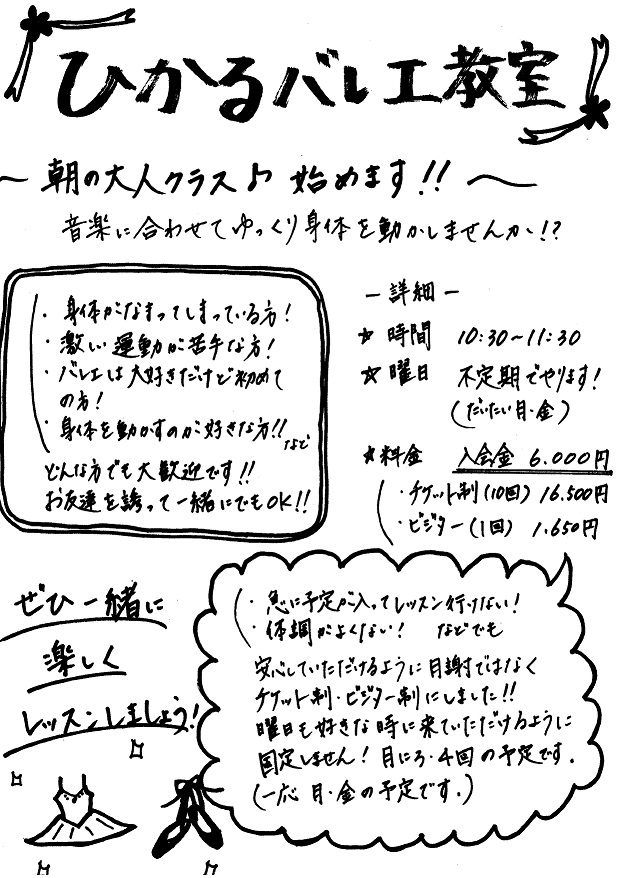 ひかるバレエ教室
～ 朝の大人クラス♪ 始めます!! ～
音楽に合わせてゆっくり身体を動かしませんか!?
・身体がなまってしまっている方!
・激しい運動が苦手な方!
・バレエは大好きだけど初めて
の方!
・身体を動かすのが好きな方!! など
どんな方でも大歓迎です!!
お友達を誘って一緒にでもOK!!
－詳細－
☆ 時間 10:30～11:30
☆ 曜日 不定期でやります!
(だいたい月・金)
☆料金 入会金 6.000円
・チケット制(10回) 16.500円
・ビジター(1回) 1.650円
ぜひ一緒に
楽しく
レッスンしましょう!
・急に予定が入ってレッスン行けない!
・体調がよくない! などでも
安心していただけるように月謝ではなく
チケット制・ビジター制にしました!!
曜日も好きな時に来ていただけるように
固定しません! 月に3・4回の予定です.
(一応 月・金の予定です.)